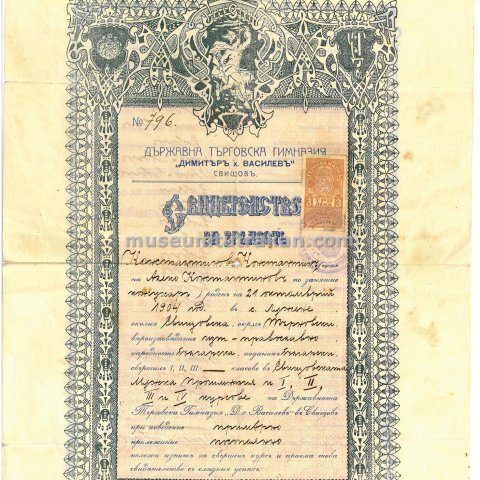 № 796.
ДЪРЖАВНА ТЪРГОВСКА ГИМНАЗИЯ
„ДИМИТЪРЪ х. ВАСИЛЕВЪ"
СВИЩОВЪ.
3 ЛЕВА 3
Свидетелство
за зрелость
museum.com
Константиновъ Константинъ
на Алеко Константиновъ по занятие
) роденъ на 21 октомврий
1904 год. въ с.
околия Свищовска, окрѫгъ Търновски
вероизповедание изт.-православно
народность българска, поданикъ български
свършилъ I, II, III — класове въ Свищовската
Мѫжка Прогимназия и I, II,
III и IV курсове на Държавната
Търговска Гимназия „Д. х. Василевъ" въ Свищовъ
при поведение примѣрно
прилежание постоянно
положи изпитъ за свършенъ курсъ и приема това
свидетелство съ следния успехъ: